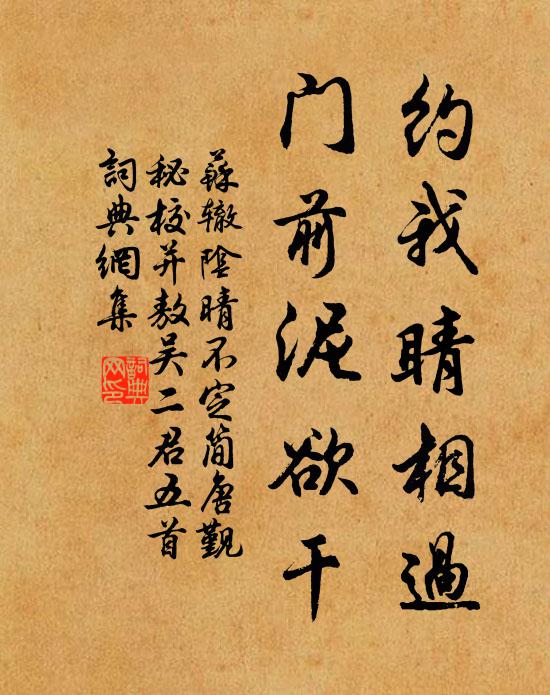 约我晴相過
门前泥欲干
蘇辙陰晴不定簡唐觐
秘校并敖吴二君五首
詞典網集
詞典网印